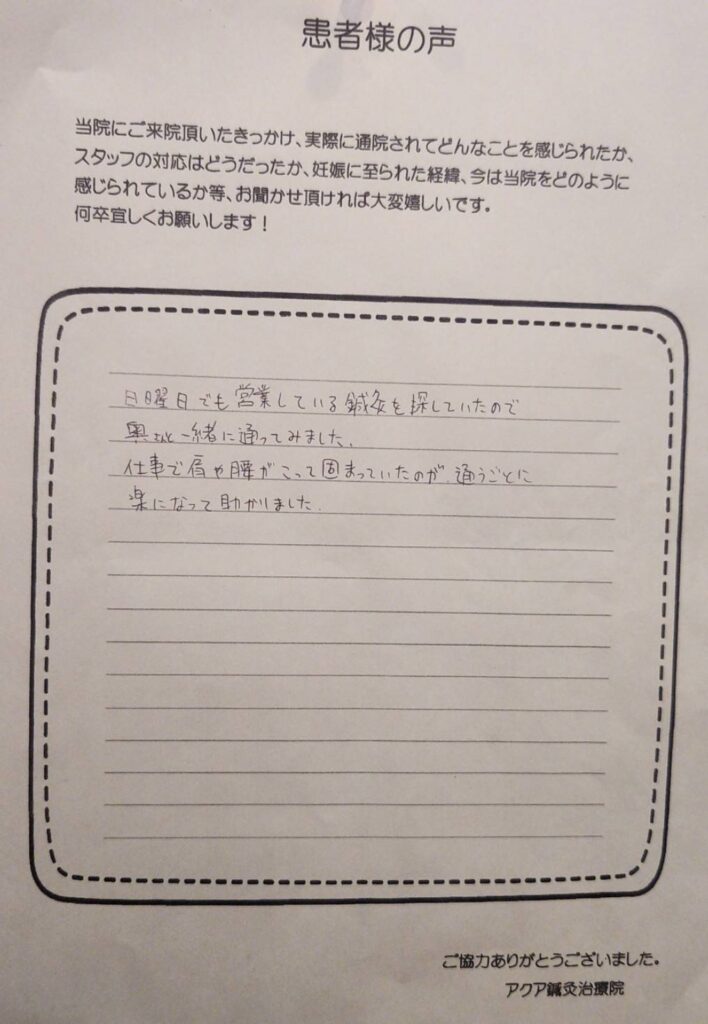 患者様の声
当院にご来院頂いたきっかけ、実際に通院されてどんなことを感じられたか、
スタッフの対応はどうだったか、妊娠に至られた経緯、今は当院をどのように
感じられているか等、お聞かせ頂ければ大変嬉しいです。
何卒宜しくお願いします！
日曜日でも営業している鍼灸を探していたので
奥さんと一緒に通ってみました。
仕事で肩や腰がこって固まっていたのが、通うごとに
楽になって助かりました。
ご協力ありがとうございました。
アクア鍼灸治療院